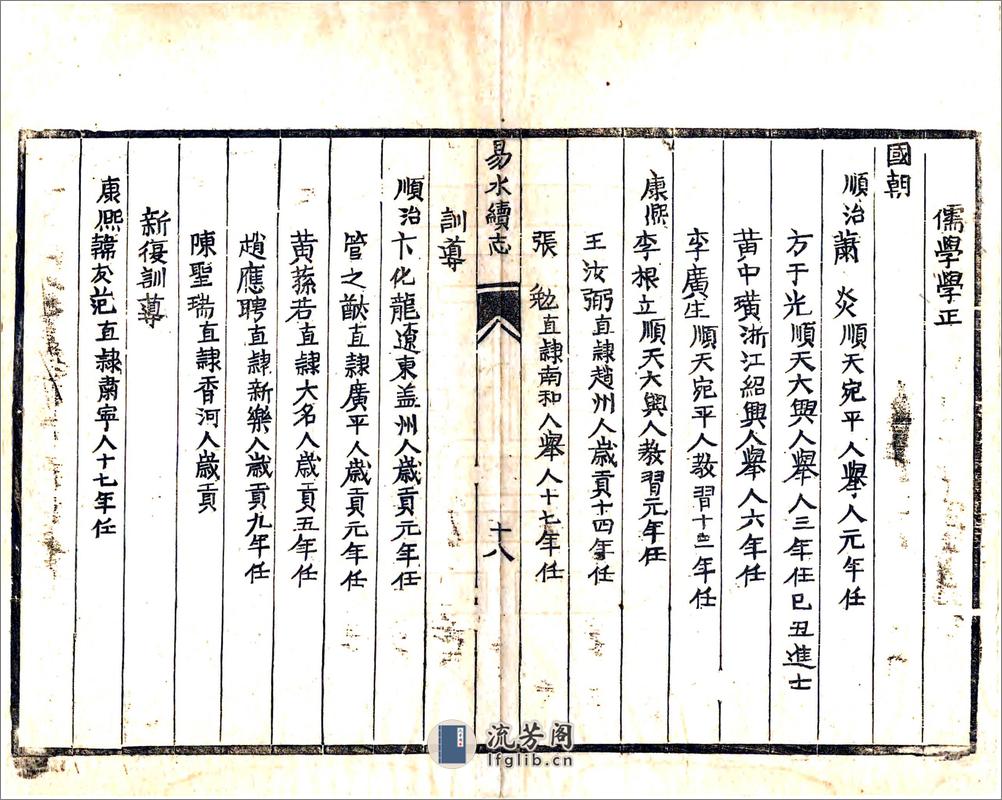 儒學學正
國朝
順治蕭 炎順天宛平人舉人元年任
方于光順天大興人舉人三年任己丑進士
黄中璜浙江紹興人舉人六年任
李廣生順天宛平人教習十二年任
康熙李根立順天大興人教習元年任
王汝弼直隸趙州人歲貢十四年任
張 勉直隸南和人舉人十七年任
易水續志
十八
訓導
順治卞化龍遼東盖州人歲貢元年任
管之猷直隸廣平人歲貢元年任
黄蓀若直隸大名人歲貢五年任
趙應聘直隸新樂人歲貢九年任
陳聖瑞直隸香河人歲貢
新復訓導
康熙韓友范直隸肅寧人十七年任
流芳阁
lfglib.cn